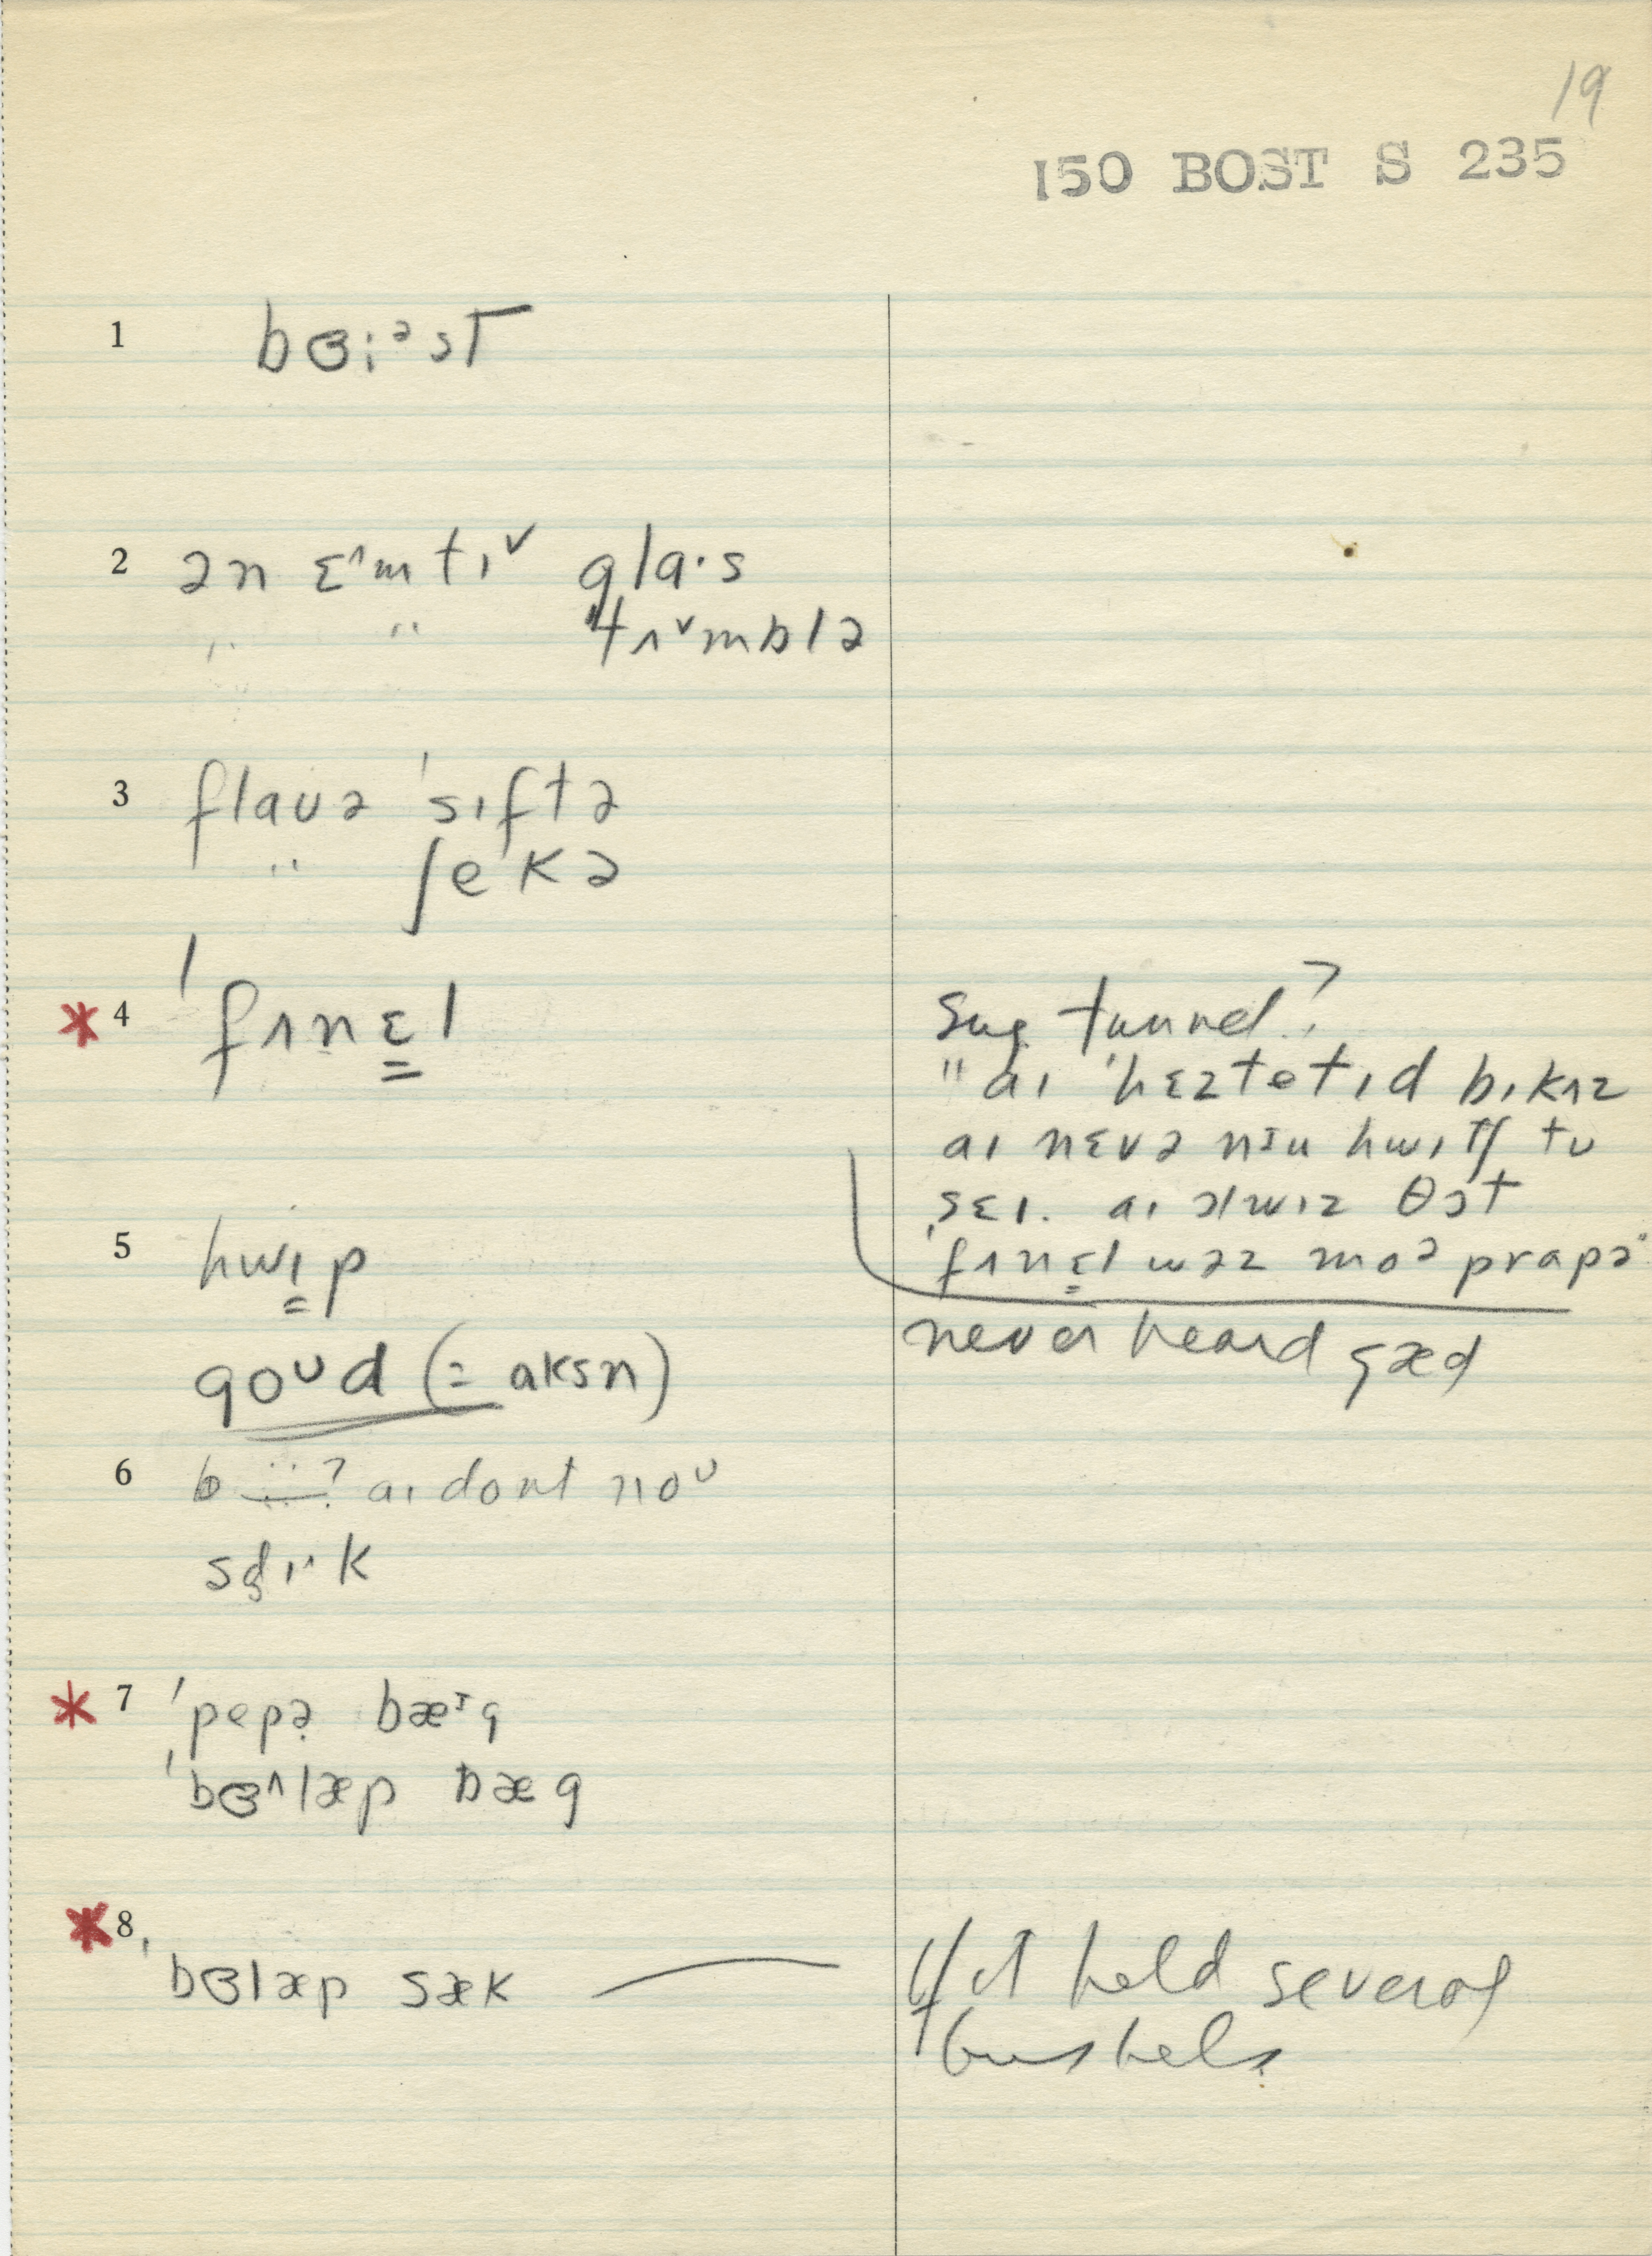 19
150 BOST S 235
1 bɞiᵊst
2 ən ɛ˄mtɪ˅ gla·s
" " 'tʌ˅mblə
3 flaʊə 'sɪftə
" ʃekə
* 4 'fʌnɛ̳l
Sug. tunnel?
"aɪ 'hɛztetɪd bɪkʌz
aɪ nɛvə nɪu hwɪtʃ tʊ
sɛɪ. aɪ ɔlwɪz θɔt
'fʌnɛ̳l wəz moᵊ prapə
5 hwɪ̳p
never heard gæd
goᶷd (= aksn)
6 aɪ dont noᶷ
* 7 'pepə bæᶦg
'bɞ˄læp bæg
* 8 'bɞlæp sæk
If it held several
bushels